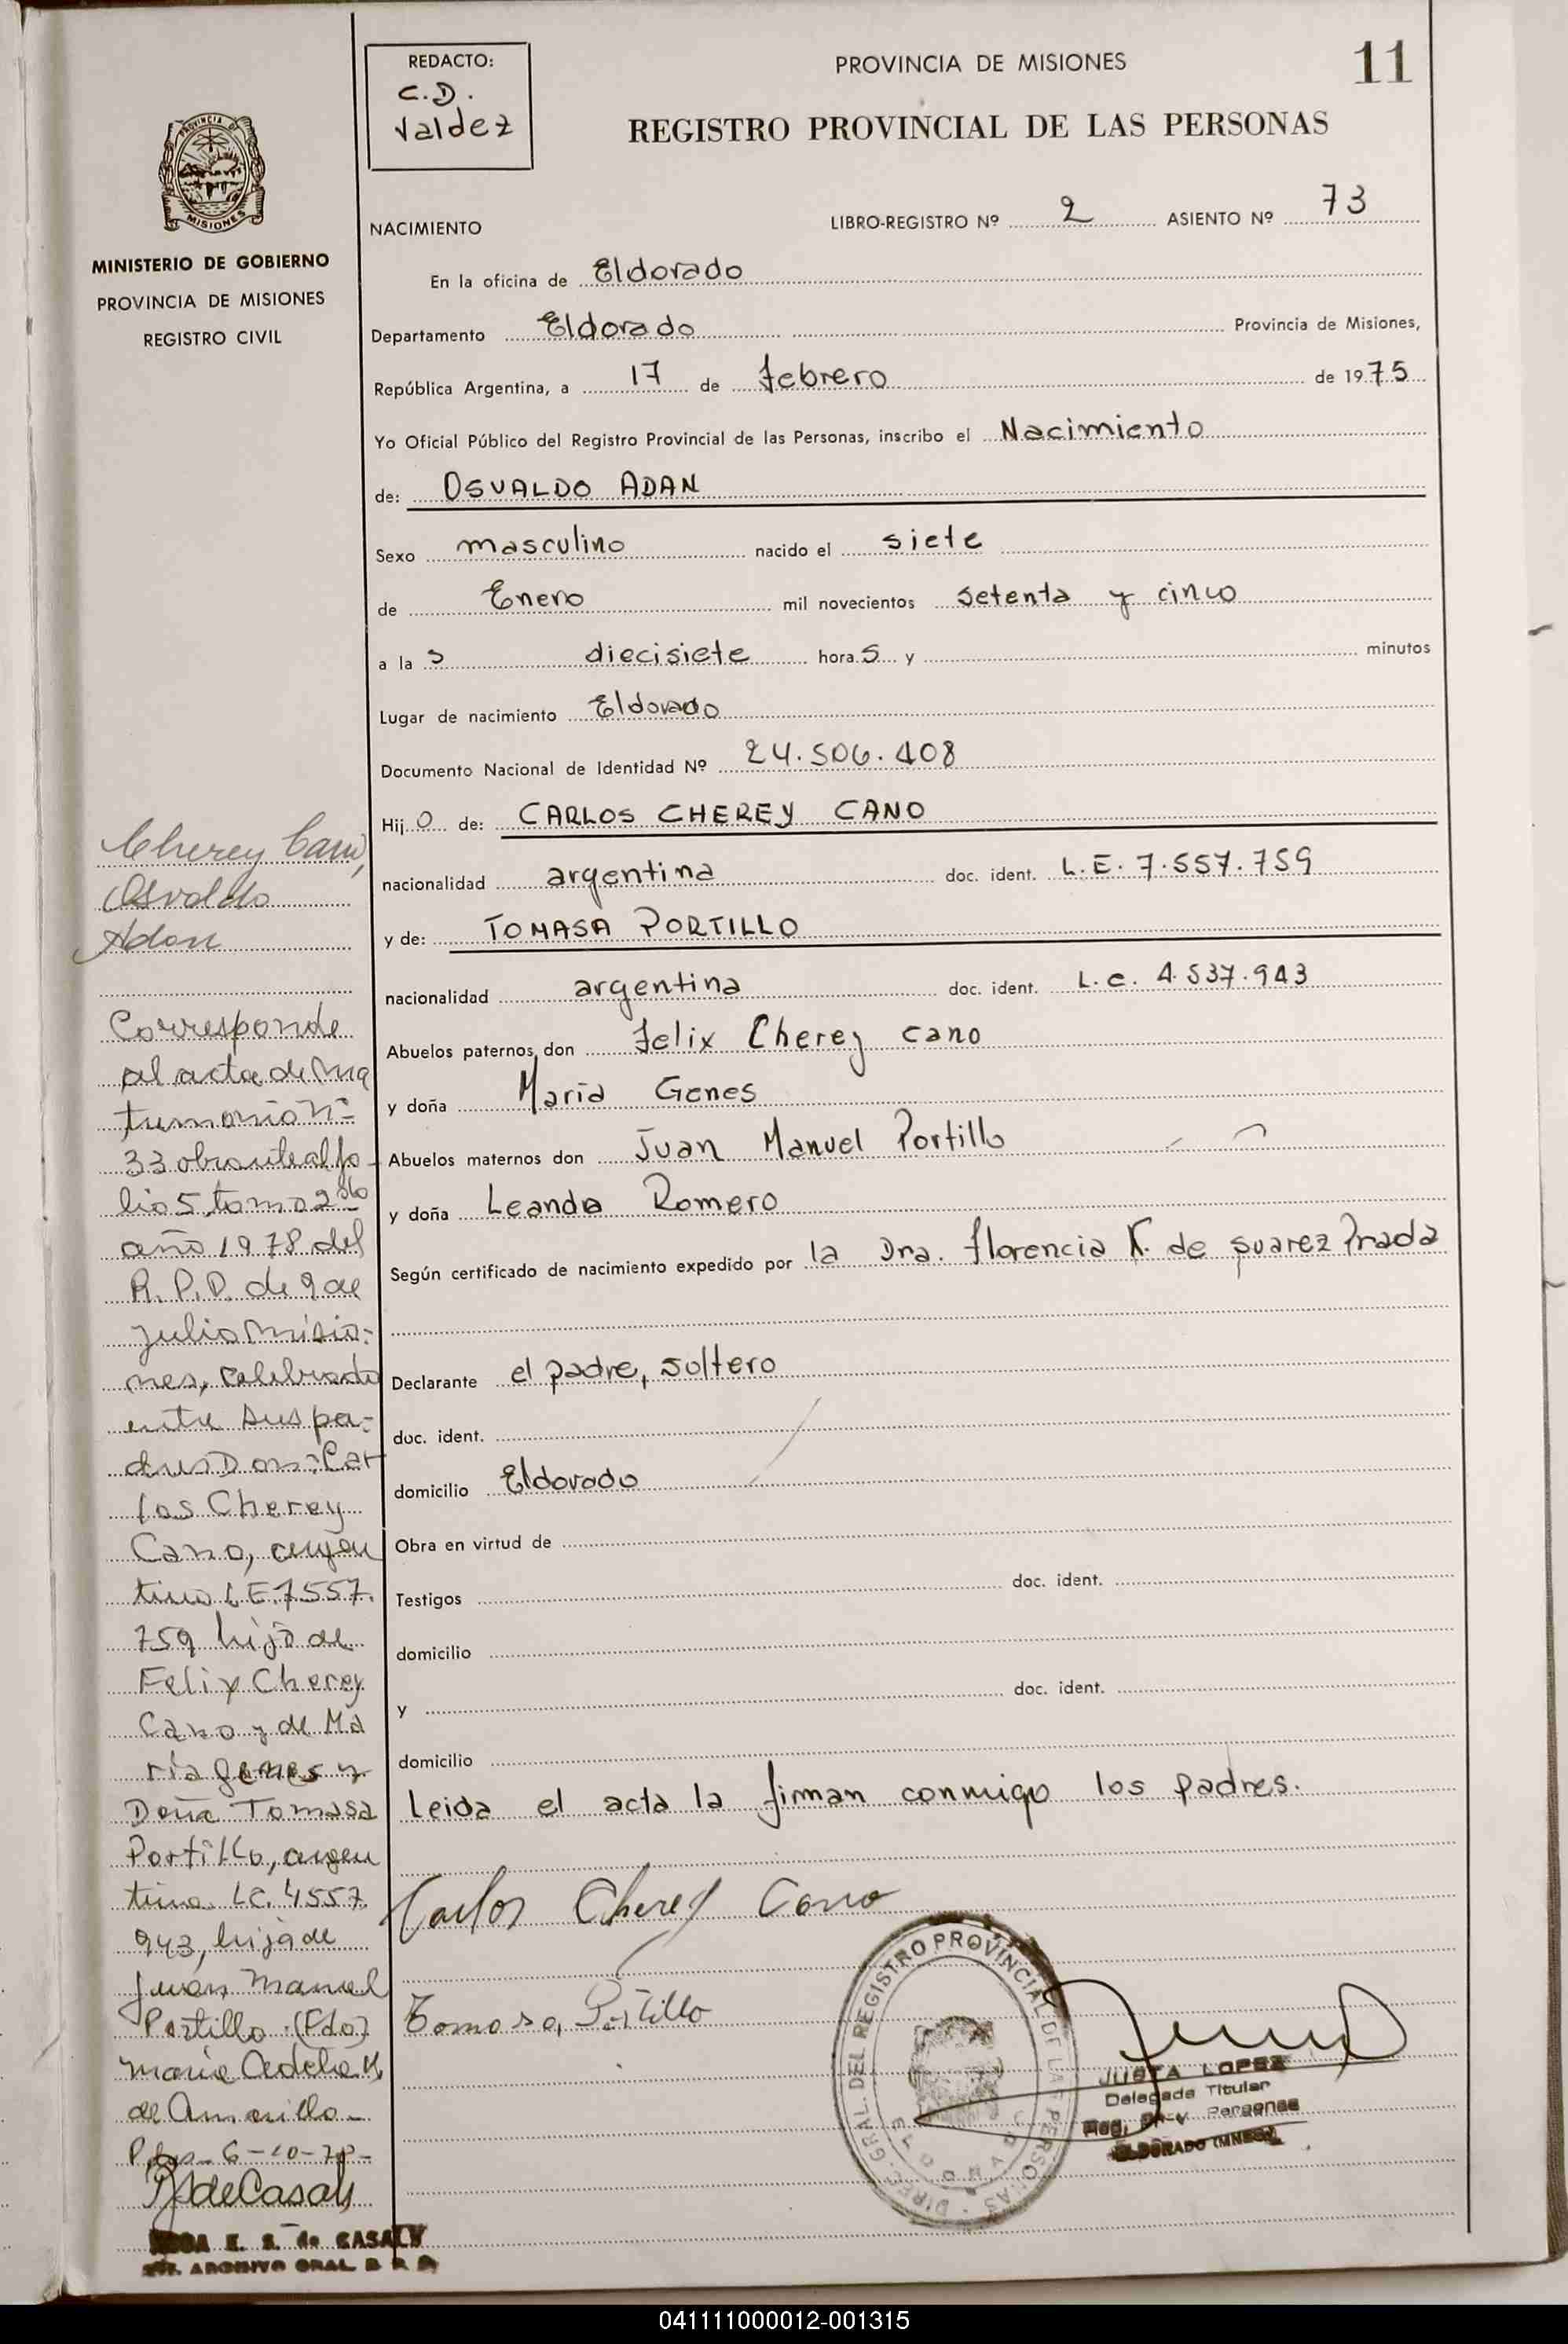 REDACTO:
C.D.
Valdez
PROVINCIA DE MISIONES
11
REGISTRO PROVINCIAL DE LAS PERSONAS
PROVINCIA DE
MISIONES
MINISTERIO DE GOBIERNO
PROVINCIA DE MISIONES
REGISTRO CIVIL
NACIMIENTO
LIBRO-REGISTRO Nº 2 ASIENTO Nº 73
En la oficina de Eldorado
Departamento Eldorado Provincia de Misiones,
República Argentina, a 17 de febrero de 1975
Yo Oficial Público del Registro Provincial de las Personas, inscribo el Nacimiento
de: OSVALDO ADAN
Sexo masculino nacido el siete
de Enero mil novecientos setenta y cinco
a la s diecisiete hora s y minutos
Lugar de nacimiento Eldorado
Documento Nacional de Identidad Nº 24.506.408
Hij o de: CARLOS CHEREY CANO
nacionalidad argentina doc. ident. L.E. 7.557.759
y de: TOMASA PORTILLO
nacionalidad argentina doc. ident. L.C. 4.537.943
Abuelos paternos don Felix Cherey Cano
y doña María Genes
Abuelos maternos don Juan Manuel Portillo
y doña Leanda Romero
Según certificado de nacimiento expedido por la Dra. Florencia K. de Suarez Prada
Declarante el padre, soltero
doc. ident.
domicilio Eldorado
Obra en virtud de
Testigos doc. ident.
domicilio
y doc. ident.
domicilio
Leida el acta la firman conmigo los padres.
Carlos Cherey Cano
Tomasa Portillo
DIREC. GRAL. DEL REGISTRO PROVINCIAL DE LAS PERSONAS
ELDORADO
JUSTA LOPEZ
Delegada Titular
Reg. Personas
ELDORADO (MNES.)
Cherey Cano,
Osvaldo
Adan
Corresponde
al acta de ma
trimonio Nº
33 obrante al fo-
lio 5 tomo 2do
año 1978 del
R.P.P. de 9 de
Julio Misio-
nes, celebrado
entre sus pa-
dres Don: Car
los Cherey
Cano, argen
tino L.E. 7.557.
759 hijo de
Felix Cherey
Cano y de Ma
ría Genes y
Doña Tomasa
Portillo, argen
tina L.C. 4557
943, hija de
Juan Manuel
Portillo. (Fdo)
María
de
6-10-78-
de Casals
E. S. de CASALS
ARCHIVO GRAL.
041111000012-001315